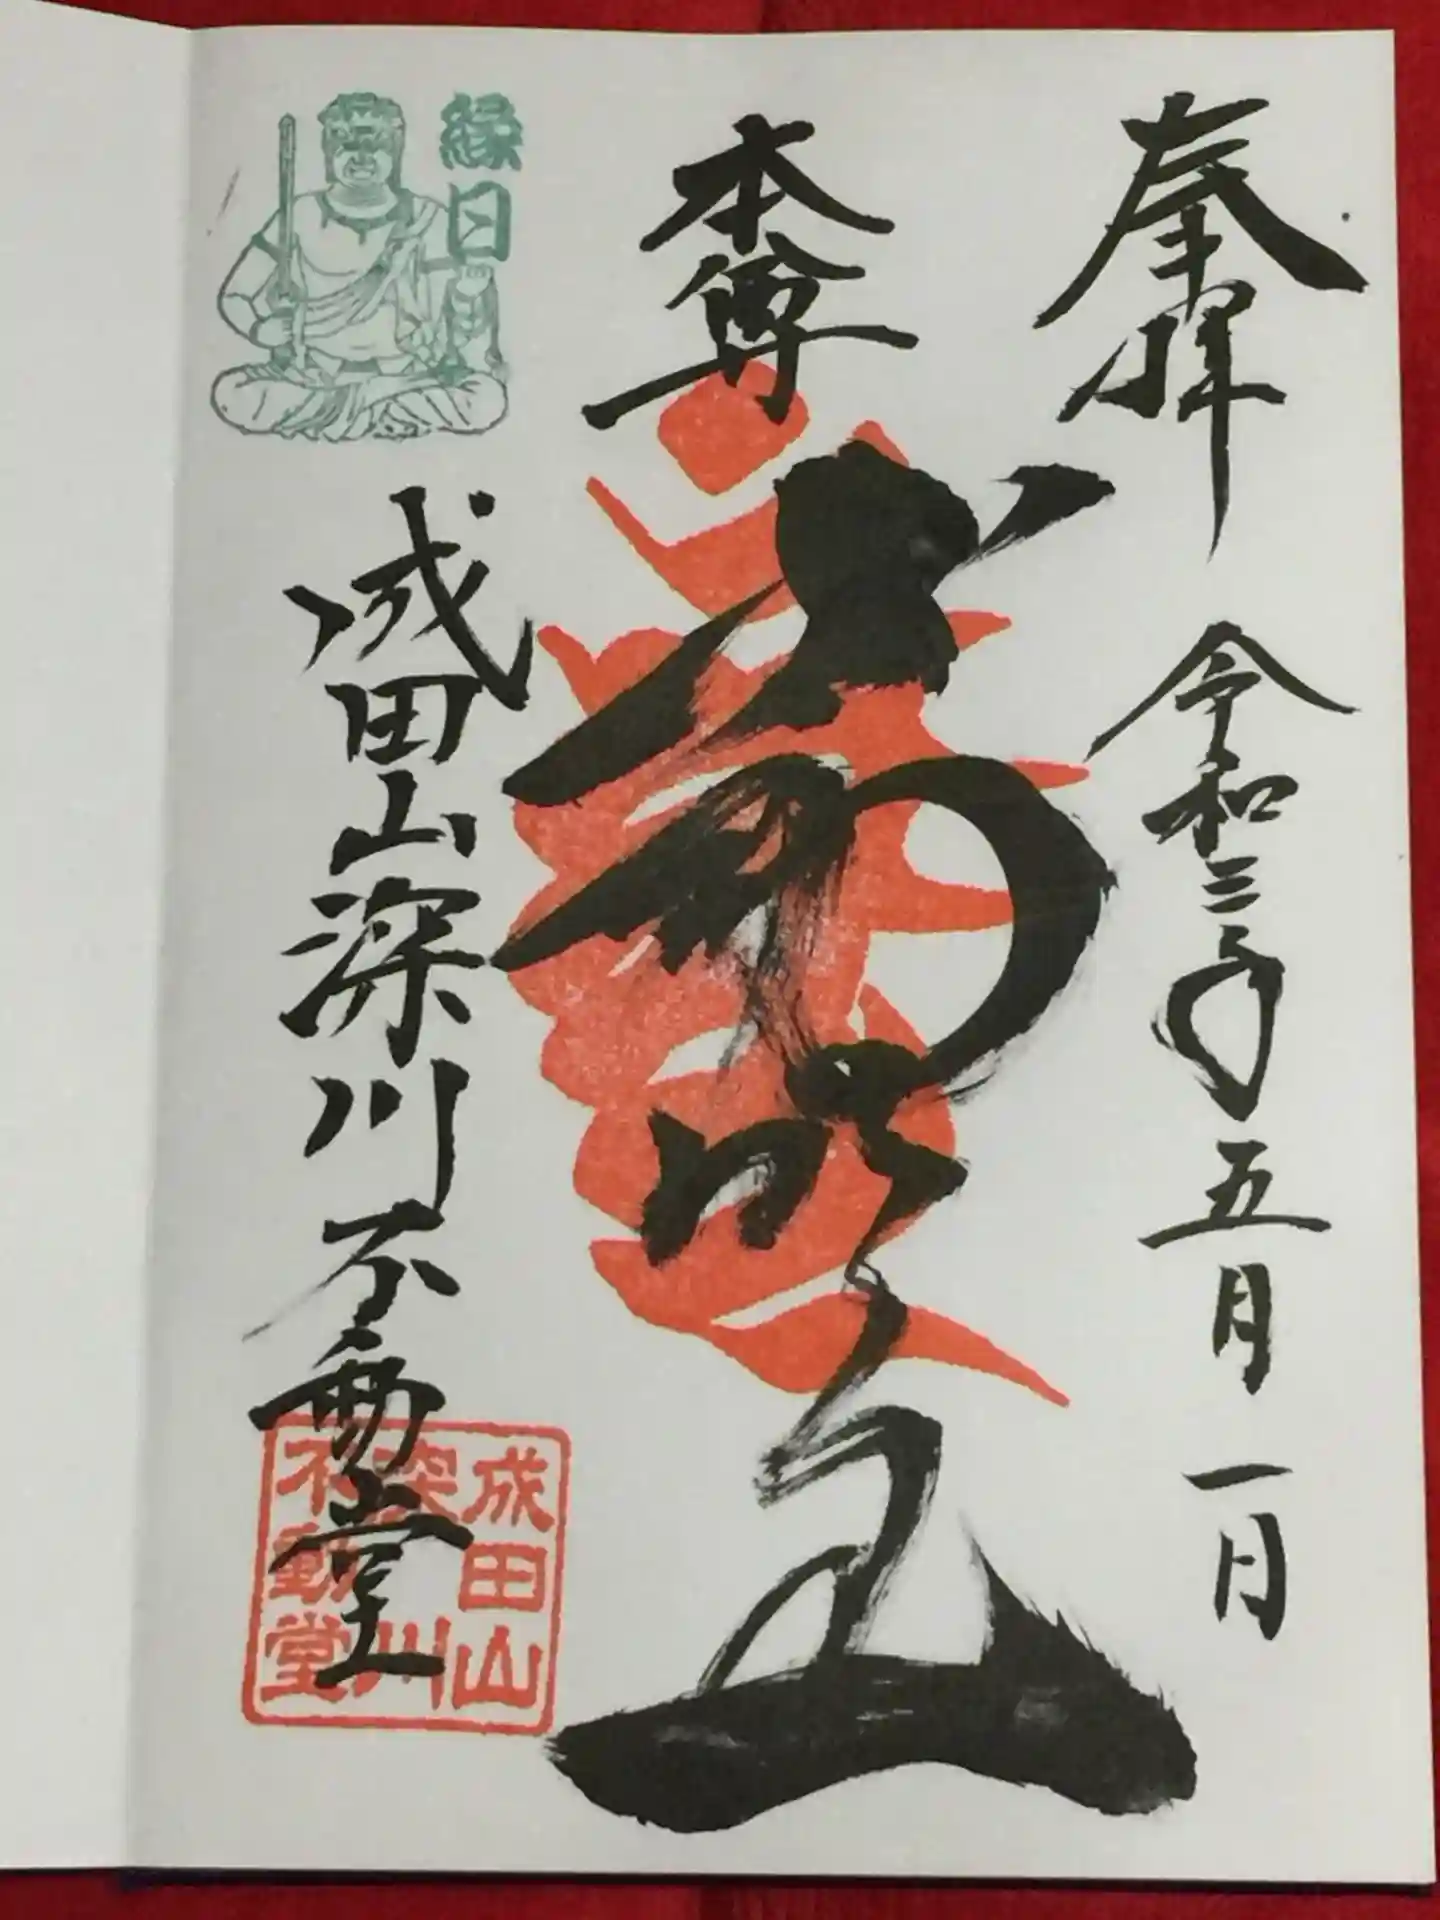 奉拝
令和三年五月一日
本尊
不動明王
縁日
成田山深川不動堂
成田山
深川
不動堂